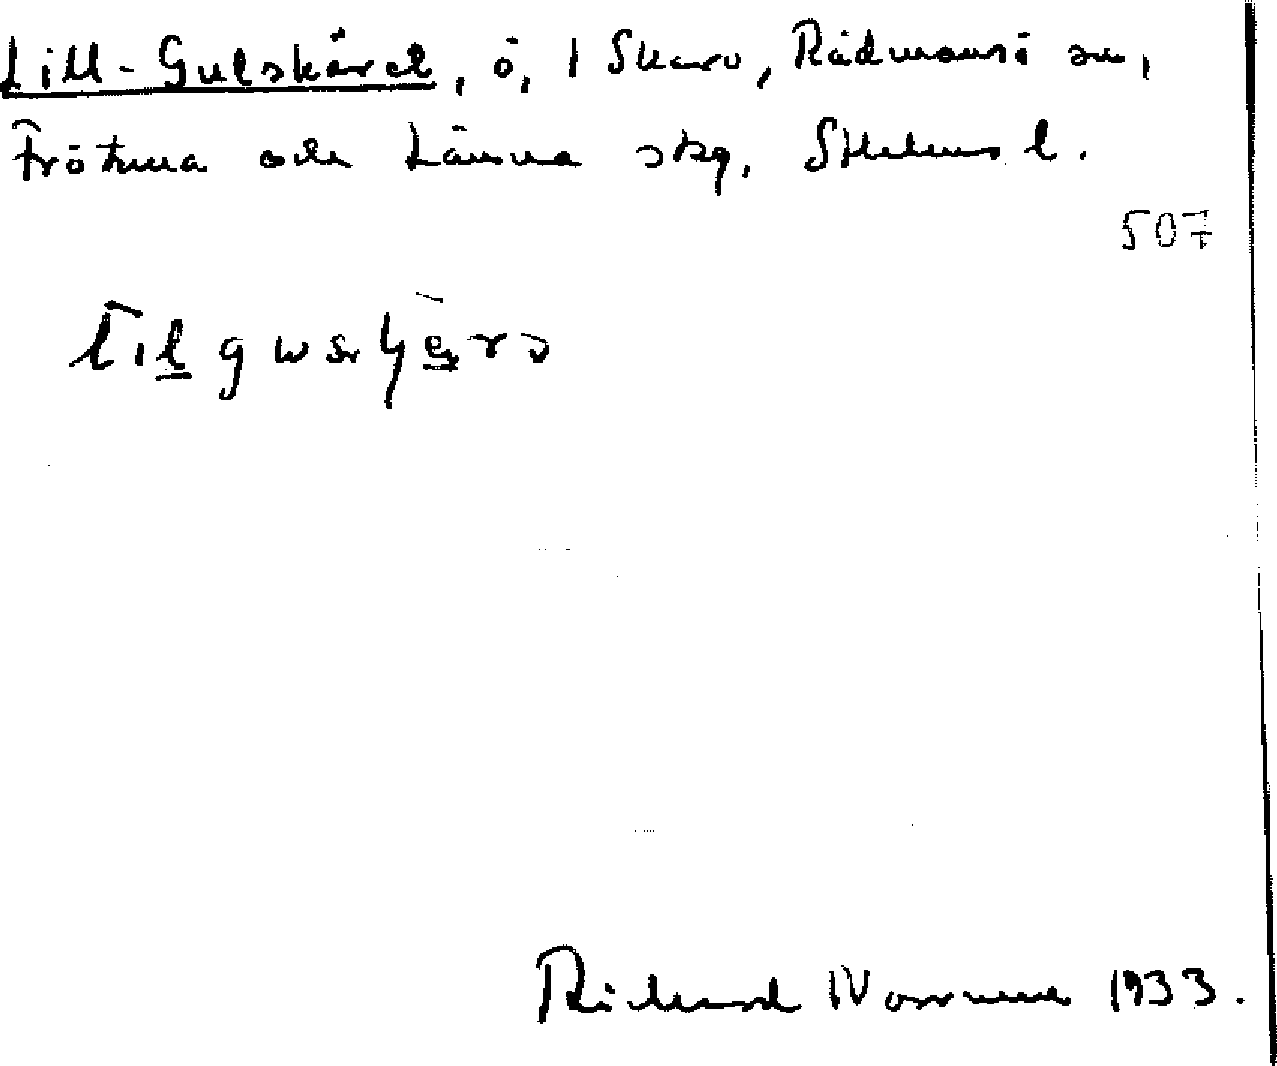 Lill-Gulskäret, ö, 1 Skarv, Rådmansö sn,
Frötuna och Länna skg, Sthlms l.
507
Richard Norrman 1933.